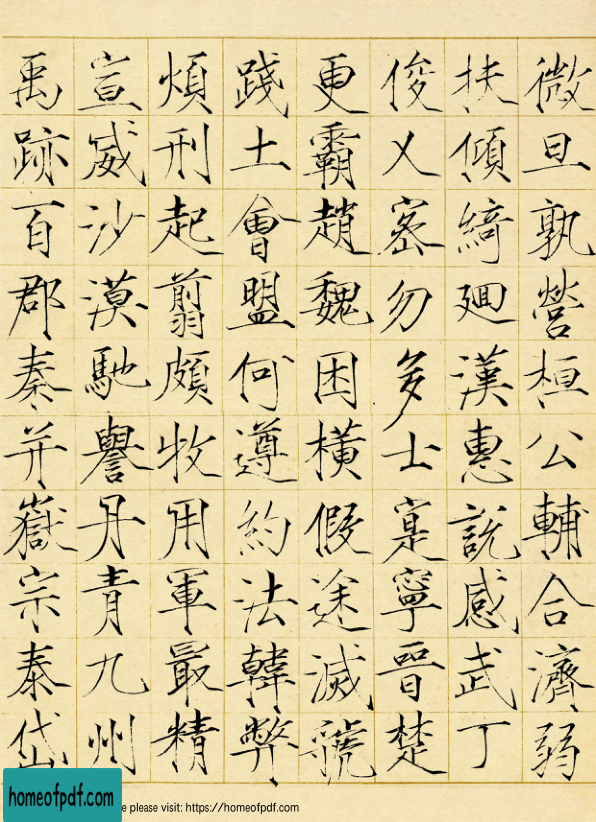 微旦孰營桓公輔合濟弱
扶傾綺廻漢惠說感武丁
俊乂密勿多士寔寧晉楚
更霸趙魏困橫假途滅虢
踐土會盟何遵約法韓弊
煩刑起翦頗牧用軍最精
宣威沙漠馳譽丹青九州
禹跡百郡秦并嶽宗泰岱
homeofpdf.com
e please visit: https://homeofpdf.com